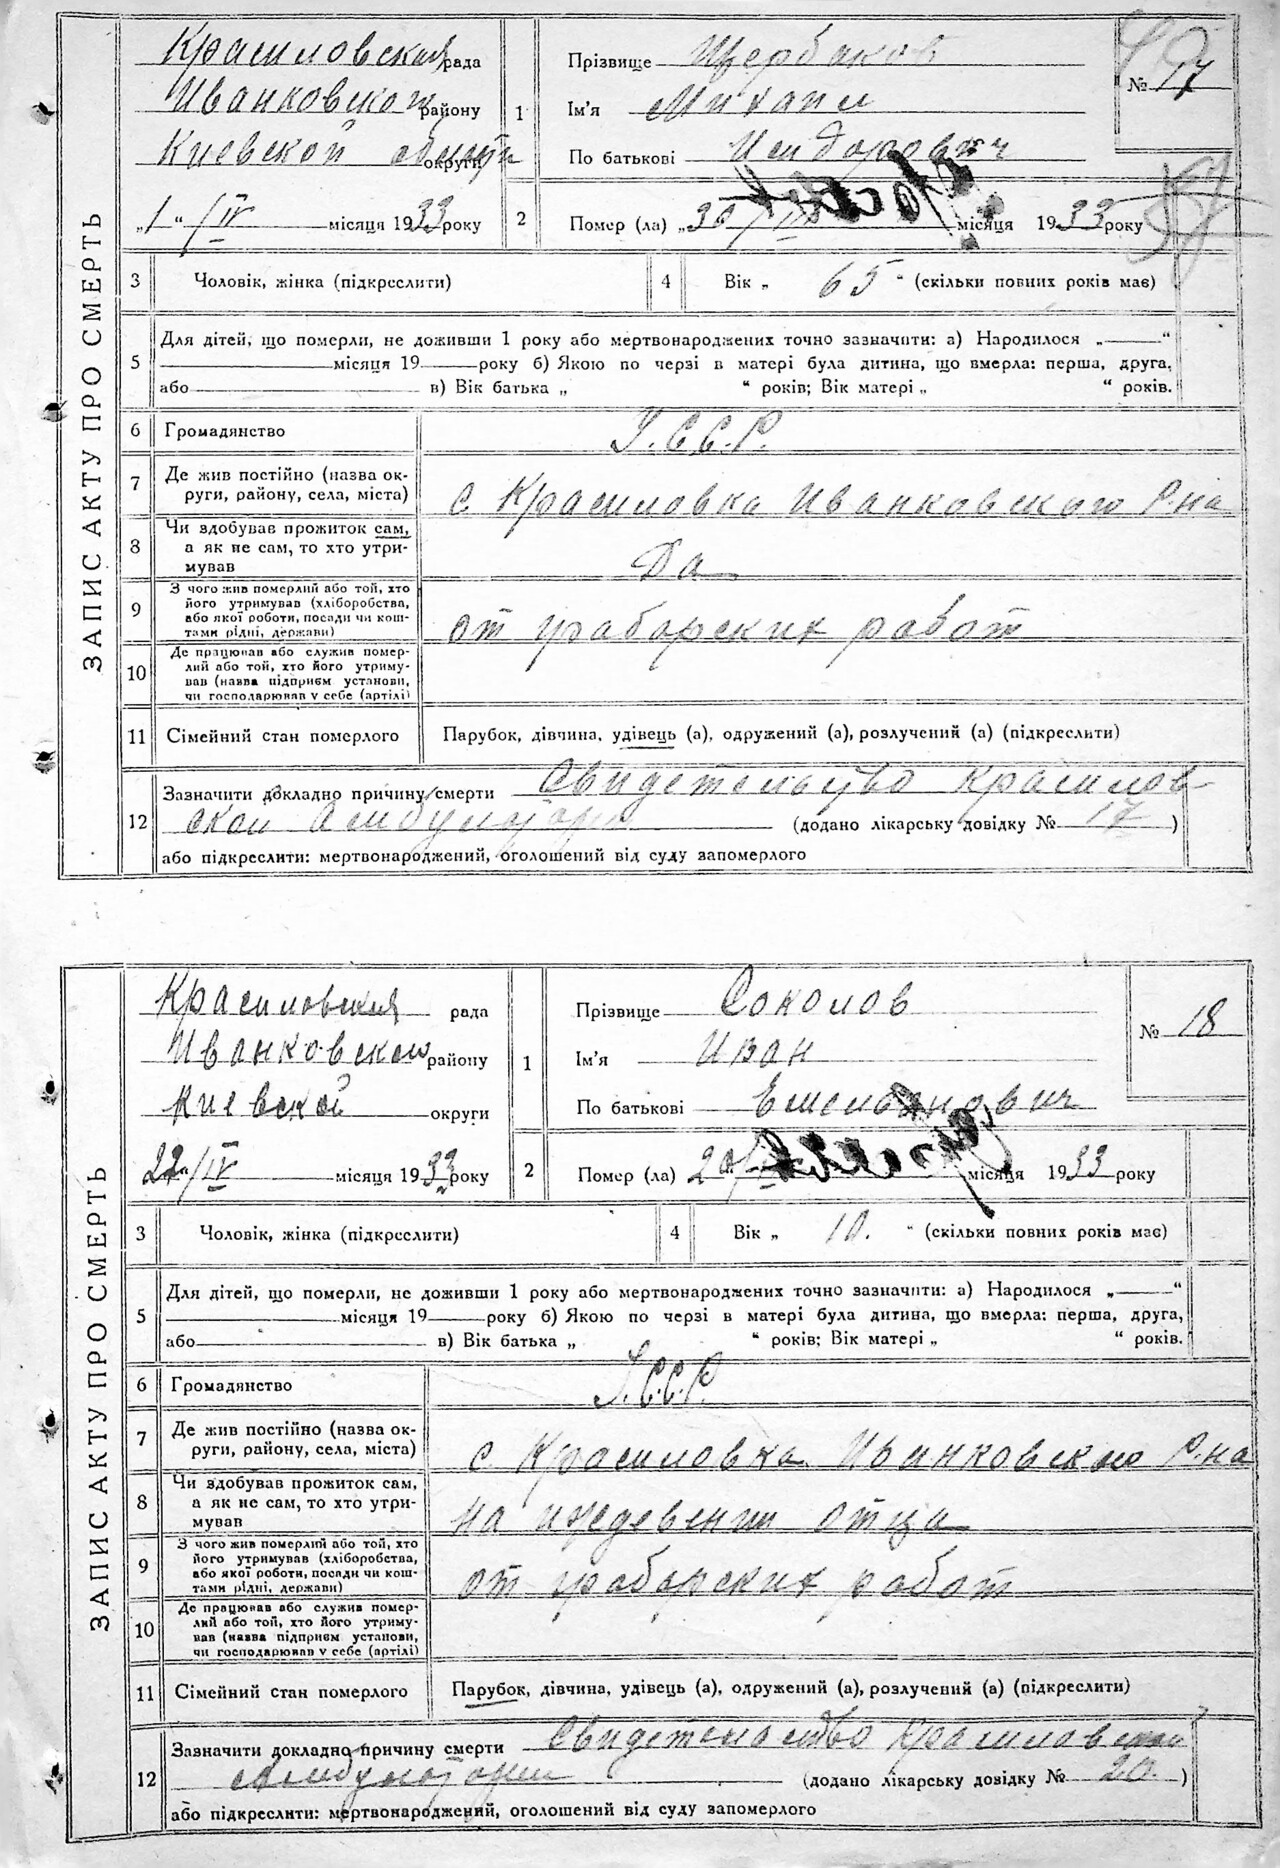 ЗАПИС АКТУ ПРО СМЕРТЬ
Красиловская рада
Иванковского району
Киевской області округи
„1“/IV місяця 1933 року
1 Прізвище Щербаков
Ім'я Михаил
По батькові Исидорович
№ 17
2 Помер (ла) „30/ місяця 1933 року
3 Чоловік, жінка (підкреслити)
4 Вік „ 65 “ (скільки повних років має)
5 Для дітей, що померли, не доживши 1 року або мертвонароджених точно зазначити: а) Народилося „ “
місяця 19 року б) Якою по черзі в матері була дитина, що вмерла: перша, друга,
або в) Вік батька „ “ років; Вік матері „ “ років.
6 Громадянство У.С.С.Р.
7 Де жив постійно (назва ок-
руги, району, села, міста) с. Красиловка Иванковского Р-на
8 Чи здобував прожиток сам,
а як не сам, то хто утри-
мував Да
9 З чого жив померлий або той, хто
його утримував (хліборобства,
або якої роботи, посади чи кош-
тами рідні, держави) от грабарских работ
10 Де працював або служив помер-
лий або той, хто його утриму-
вав (назва підприєм установи,
чи господарював у себе (артілі)
11 Сімейний стан померлого Парубок, дівчина, удівець (а), одружений (а), розлучений (а) (підкреслити)
12 Зазначити докладно причину смерти Свидетельство Красилов-
ской Амбулатории (додано лікарську довідку № 17 )
або підкреслити: мертвонароджений, оголошений від суду запомерлого
ЗАПИС АКТУ ПРО СМЕРТЬ
Красиловская рада
Иванковского району
Киевской округи
22/IV місяця 1933 року
1 Прізвище Соколов
Ім'я Иван
По батькові Емельянович
№ 18
2 Помер (ла) 20/ місяця 1933 року
3 Чоловік, жінка (підкреслити)
4 Вік „ 10. “ (скільки повних років має)
5 Для дітей, що померли, не доживши 1 року або мертвонароджених точно зазначити: а) Народилося „ “
місяця 19 року б) Якою по черзі в матері була дитина, що вмерла: перша, друга,
або в) Вік батька „ “ років; Вік матері „ “ років.
6 Громадянство У.С.С.Р.
7 Де жив постійно (назва ок-
руги, району, села, міста) с. Красиловка Иванковского Р-на
8 Чи здобував прожиток сам,
а як не сам, то хто утри-
мував на иждевении отца
9 З чого жив померлий або той, хто
його утримував (хліборобства,
або якої роботи, посади чи кош-
тами рідні, держави) от грабарских работ
10 Де працював або служив помер-
лий або той, хто його утриму-
вав (назва підприєм установи,
чи господарював у себе (артілі)
11 Сімейний стан померлого Парубок, дівчина, удівець (а), одружений (а), розлучений (а) (підкреслити)
12 Зазначити докладно причину смерти Свидетельство Красиловской
Амбулатории (додано лікарську довідку № 20. )
або підкреслити: мертвонароджений, оголошений від суду запомерлого